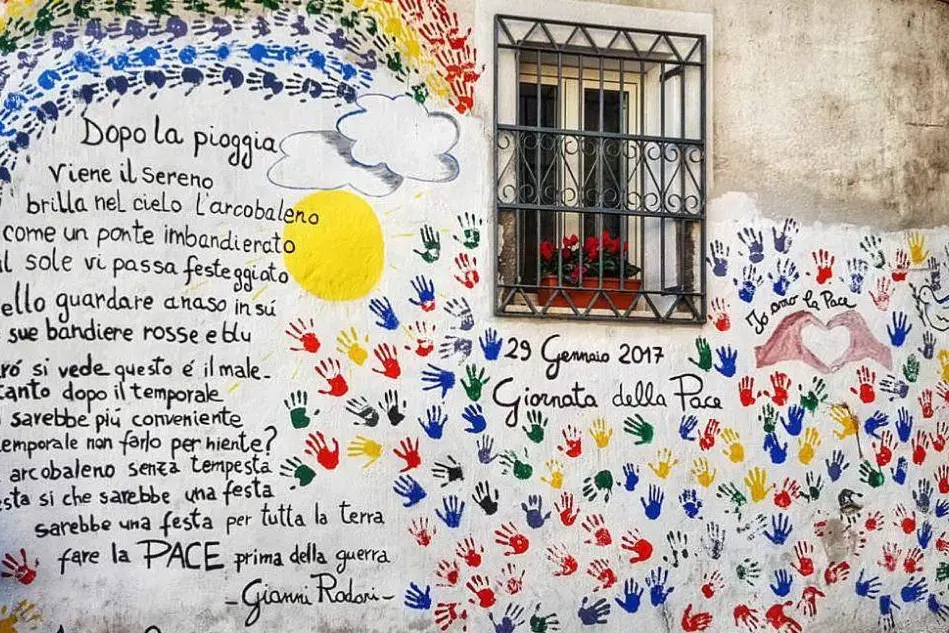 Dopo la pioggia
viene il sereno
brilla nel cielo l'arcobaleno
come un ponte imbandierato
sole vi passa festeggiato
guardare a naso in sú
sue bandiere rosse e blu
si vede questo é il male
dopo il temporale
sarebbe piú conveniente
non farlo per niente?
arcobaleno senza tempesta
si che sarebbe una festa
sarebbe una festa per tutta la terra
fare la PACE prima della guerra
- Gianni Rodari -
29 Gennaio 2017
Giornata della Pace
Io amo la Pace